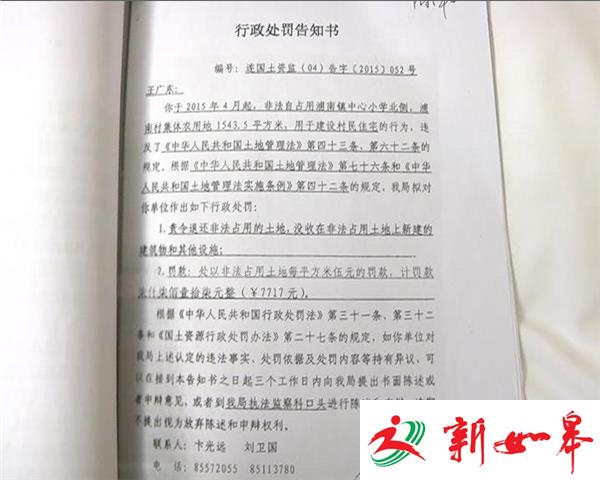 行政处罚告知书
编号：连国土资监（04）告字〔2015〕052号
王广东：
你于2015年4月起，非法自占用浦南镇中心小学北侧，浦
南村集体农用地1543.5平方米，用于建设村民住宅的行为，违
反了《中华人民共和国土地管理法》第四十三条、第六十二条的
规定。根据《中华人民共和国土地管理法》第七十六条和《中华
人民共和国土地管理法实施条例》第四十二条的规定，我局拟对
你单位作出如下行政处罚：
1.责令退还非法占用的土地，没收在非法占用土地上新建的
建筑物和其他设施；
2.罚款：处以非法占用土地每平方米伍元的罚款，计罚款
柒仟柒佰壹拾柒元整（￥7717元）。
根据《中华人民共和国行政处罚法》第三十一条、第三十二
条和《国土资源行政处罚办法》第二十七条的规定，如你单位对
我局上述认定的违法事实、处罚依据及处罚内容等持有异议，可
可在接到本告知书之日起三个工作日内向我局提出书面陈述或
者申辩意见，或者到我局执法监察科口头进行陈
不提出视为放弃陈述和申辩权利。
联系人：卞光远 刘卫国
电话：85572055 85113780
新如皋